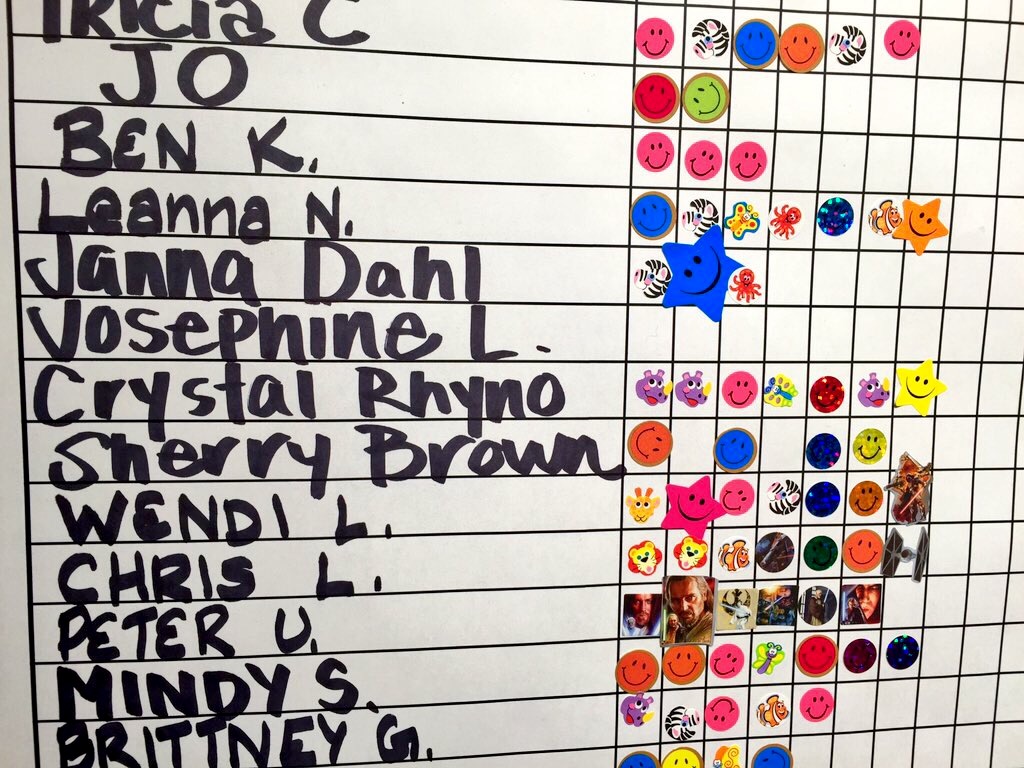 TRICIA C
JO
BEN K.
Leanna N.
Janna Dahl
Josephine L.
Crystal Rhyno
Sherry Brown
WENDI L.
CHRIS L.
PETER U.
MINDY S.
BRITTNEY G.